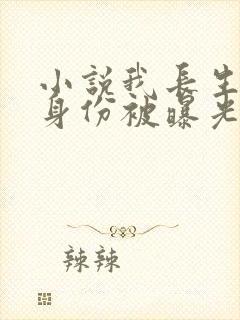 小说我长生
身份被曝光
辣辣